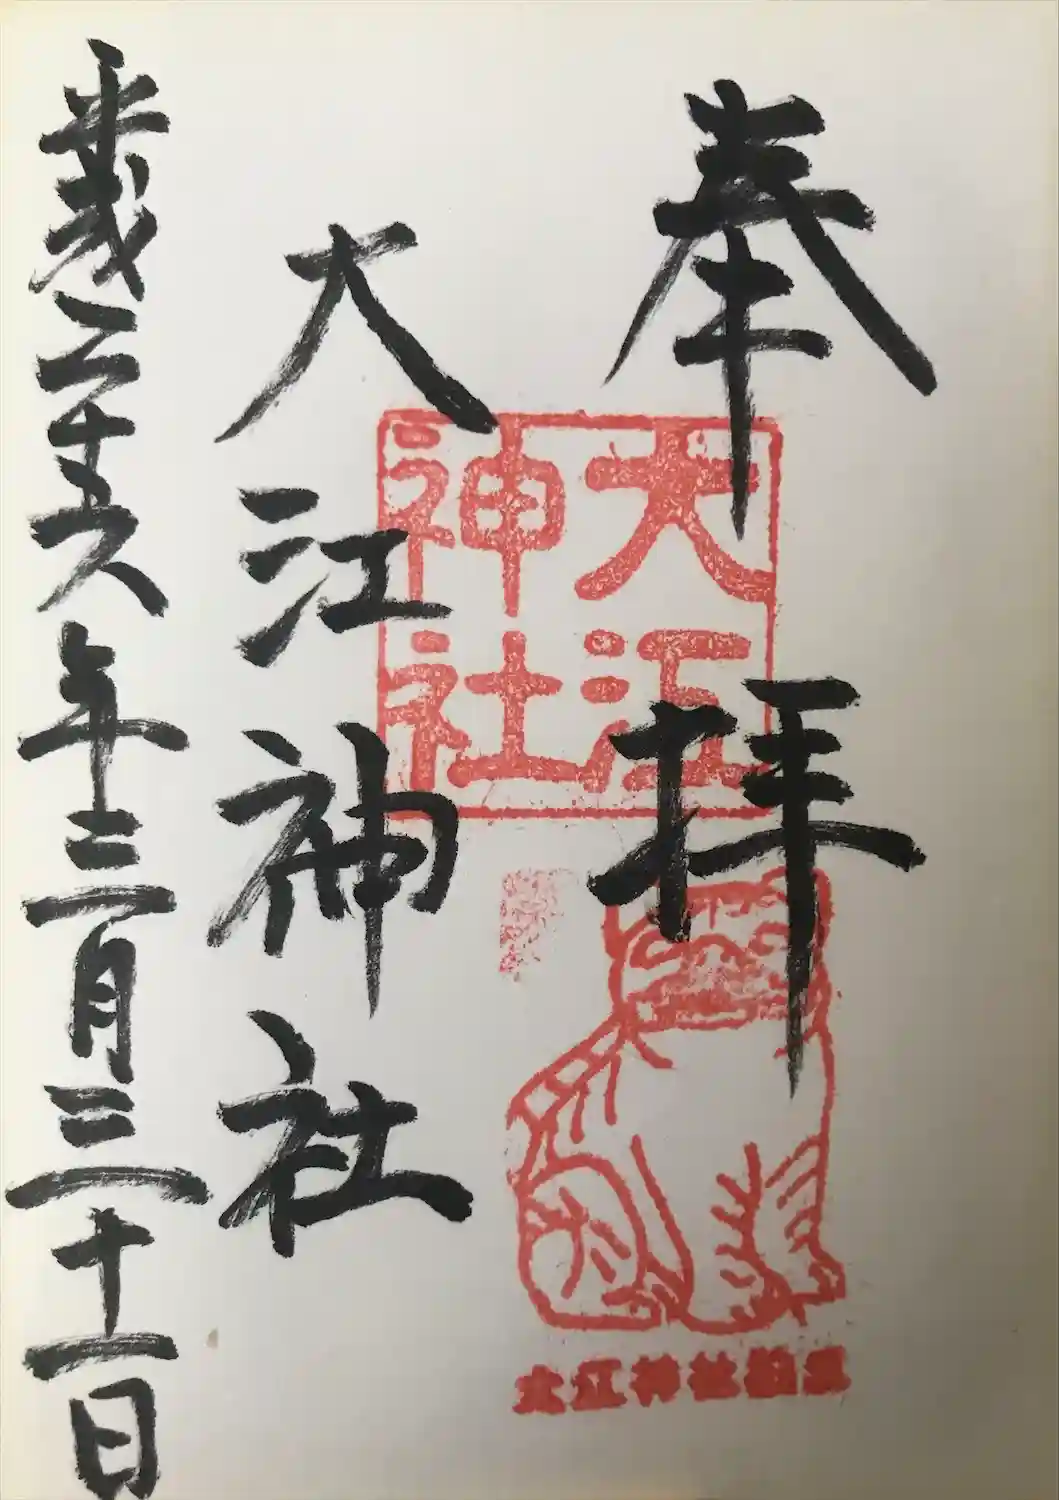 奉拝
大江神社
平成二十六年三月三十一日
大江
神社
大江神社